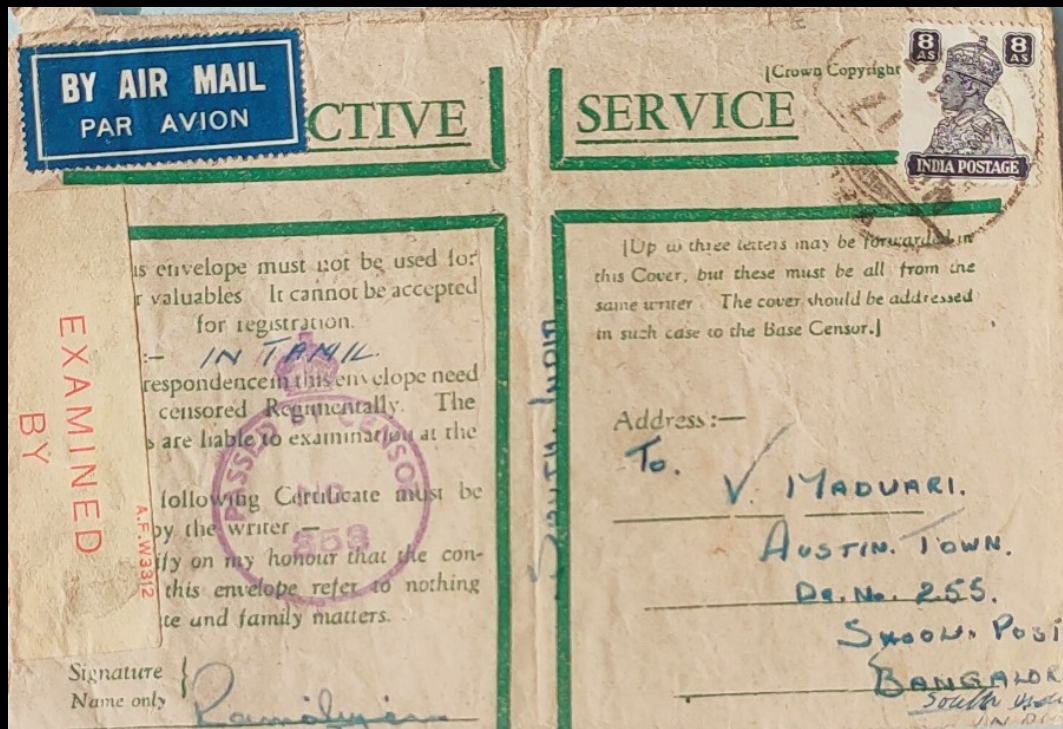 BY AIR MAIL
PAR AVION
CTIVE SERVICE
[Crown Copyright
8 AS 8 AS
INDIA POSTAGE
is envelope must not be used for
r valuables It cannot be accepted
for registration.
:— IN TAMIL.
respondence in this envelope need
censored Regimentally. The
s are liable to examination at the
following Certificate must be
by the writer —
ify on my honour that the con-
this envelope refer to nothing
te and family matters.
Signature
Name only
EXAMINED
BY
A.F.W3312
PASSED BY CENSOR
NO
SOUTH. INDIA
[Up to three letters may be forwarded in
this Cover, but these must be all from the
same writer. The cover should be addressed
in such case to the Base Censor.]
Address:—
To.
V. MADUARI.
AUSTIN. TOWN.
No. 255.
POST
BANGALOR
South